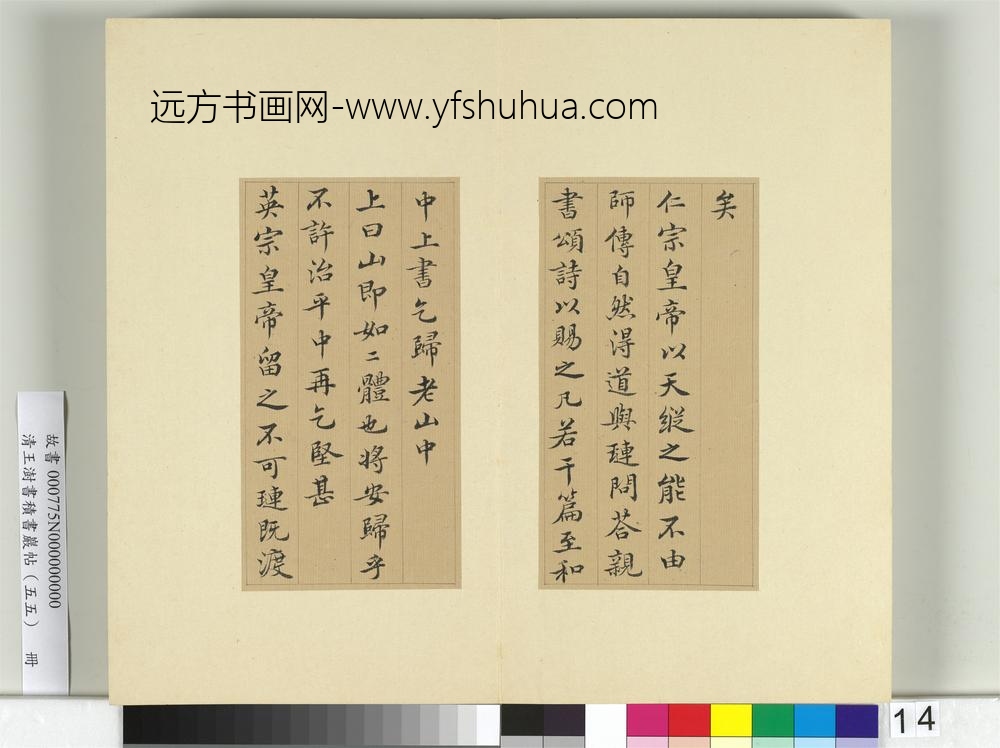 远方书画网-www.yfshuhua.com
矣
仁宗皇帝以天縱之能不由
師傳自然得道與璉問荅親
書頌詩以賜之凡若干篇至和
中上書乞歸老山中
上曰山即如二體也將安歸乎
不許治平中再乞堅甚
英宗皇帝留之不可璉既渡
故書000775N000000000
清王澍書積書巖帖（五五） 冊
14